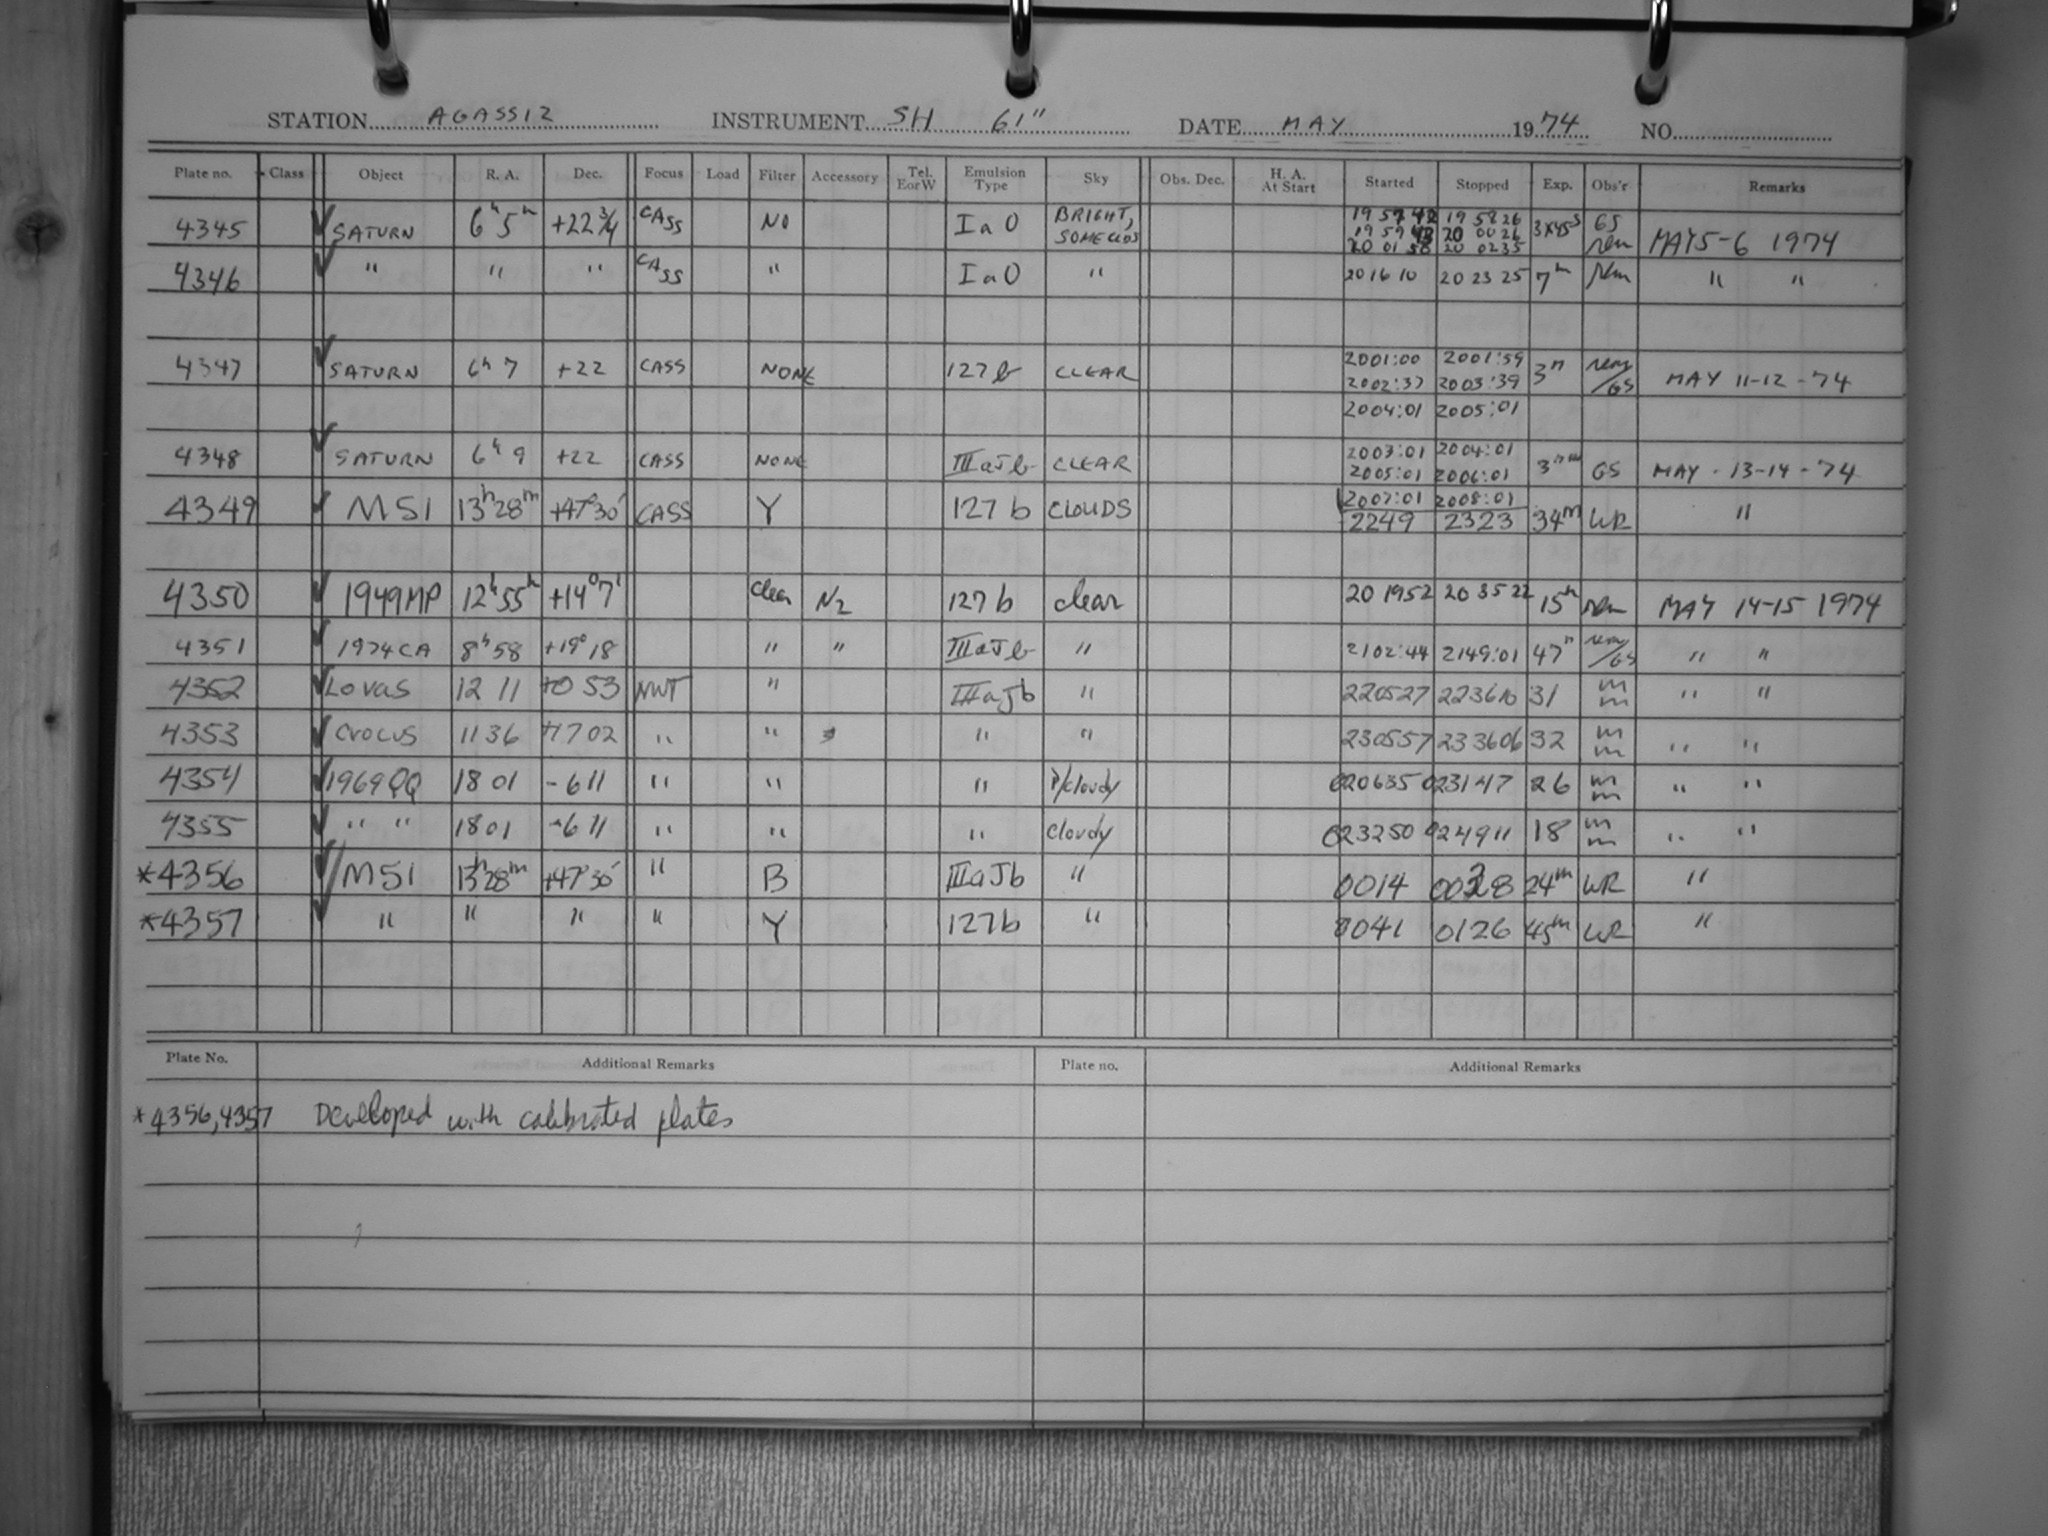 STATION AGASSIZ INSTRUMENT SH 61" DATE MAY 1974 NO.
Plate no. Class Object R. A. Dec. Focus Load Filter Accessory Tel. E or W Emulsion Type Sky Obs. Dec. H. A. At Start Started Stopped Exp. Obs'r Remarks
4345 SATURN 6h 5m +22 3/4 CASS NO IaO BRIGHT, 19 57 42 19 58 26 3x45s GS MAY 5-6 1974
19 59 43 20 00 26
20 01 50 20 02 35
4346 " " " CASS " IaO " 20 16 10 20 23 25 7m " "
4347 SATURN 6h 7 +22 CASS NONE 127b CLEAR 2001:00 2001:59 3m /GS MAY 11-12-74
2002:37 2003:39
2004:01 2005:01
4348 SATURN 6h 9 +22 CASS NONE IIIaJb CLEAR 2003:01 2004:01 3m GS MAY-13-14-74
2005:01 2006:01
2007:01 2008:01
4349 M51 13h28m +47°30' CASS Y 127b CLOUDS 2249 2323 34m WR "
4350 1949MP 12h55m +14°7' Clear N2 127b clear 20 1952 20 35 22 15m MAY 14-15 1974
4351 1974CA 8h58 +19°18 " " IIIaJb " 2102:44 2149:01 47m /GS " "
4352 Lovas 12 11 +0 53 NWT " IIIaJb " 220527 223610 31 m m " "
4353 Crocus 11 36 +7 02 " " " " 230557 233606 32 m m " "
4354 1969QQ 18 01 -6 11 " " " P/cloudy 020635 023147 26 m m " "
4355 " " 18 01 -6 11 " " " cloudy 023250 024911 18 m m " "
*4356 M51 13h28m +47°30' " B IIIaJb " 0014 0038 24m WR "
*4357 " " " " Y 127b " 0041 0126 45m WR "
Plate No. Additional Remarks Plate no. Additional Remarks
*4356,4357 Developed with calibrated plates